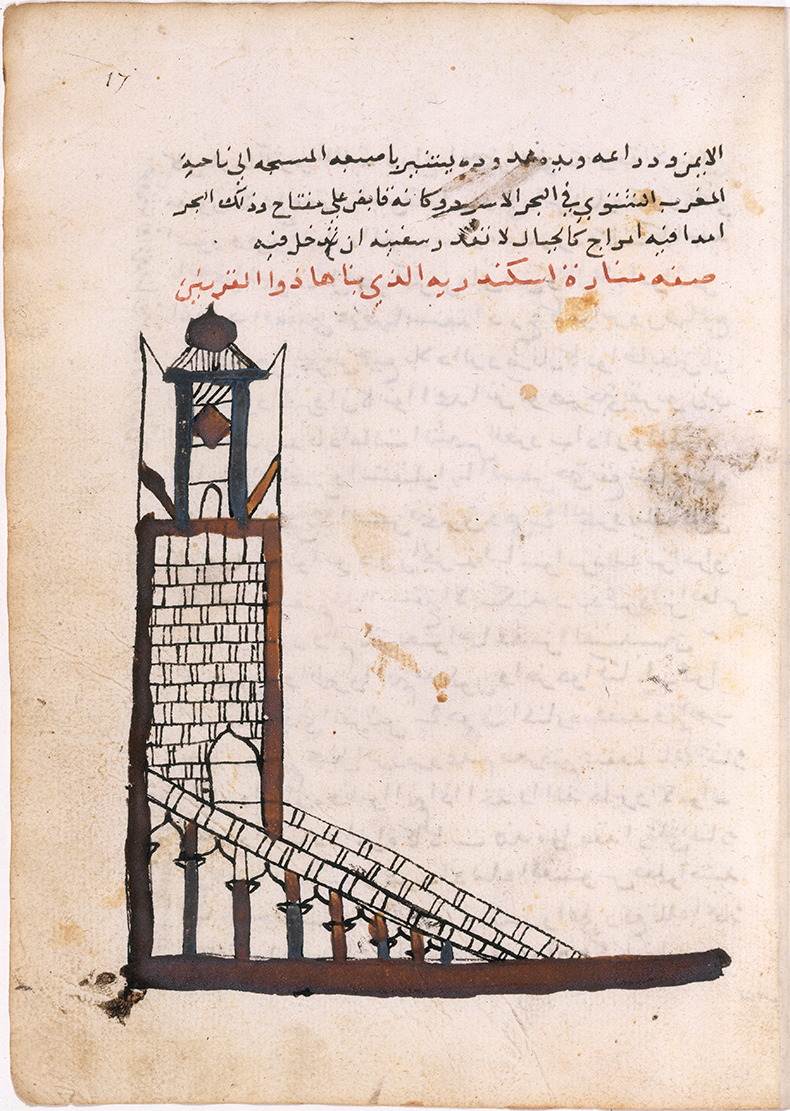 ١٧
الايمن وذراعه ويده ممدوده يشير باصبعه المسبحه الي ناحية
المغرب الشتوي في البحر الاسود وكانه قابض علي مفتاح وذلك البحر
ابدا فيه امواج كالجبال لا تقدر سفينه ان تدخل فيه
صفه منارة اسكندريه الذي بناها ذوا القرنين